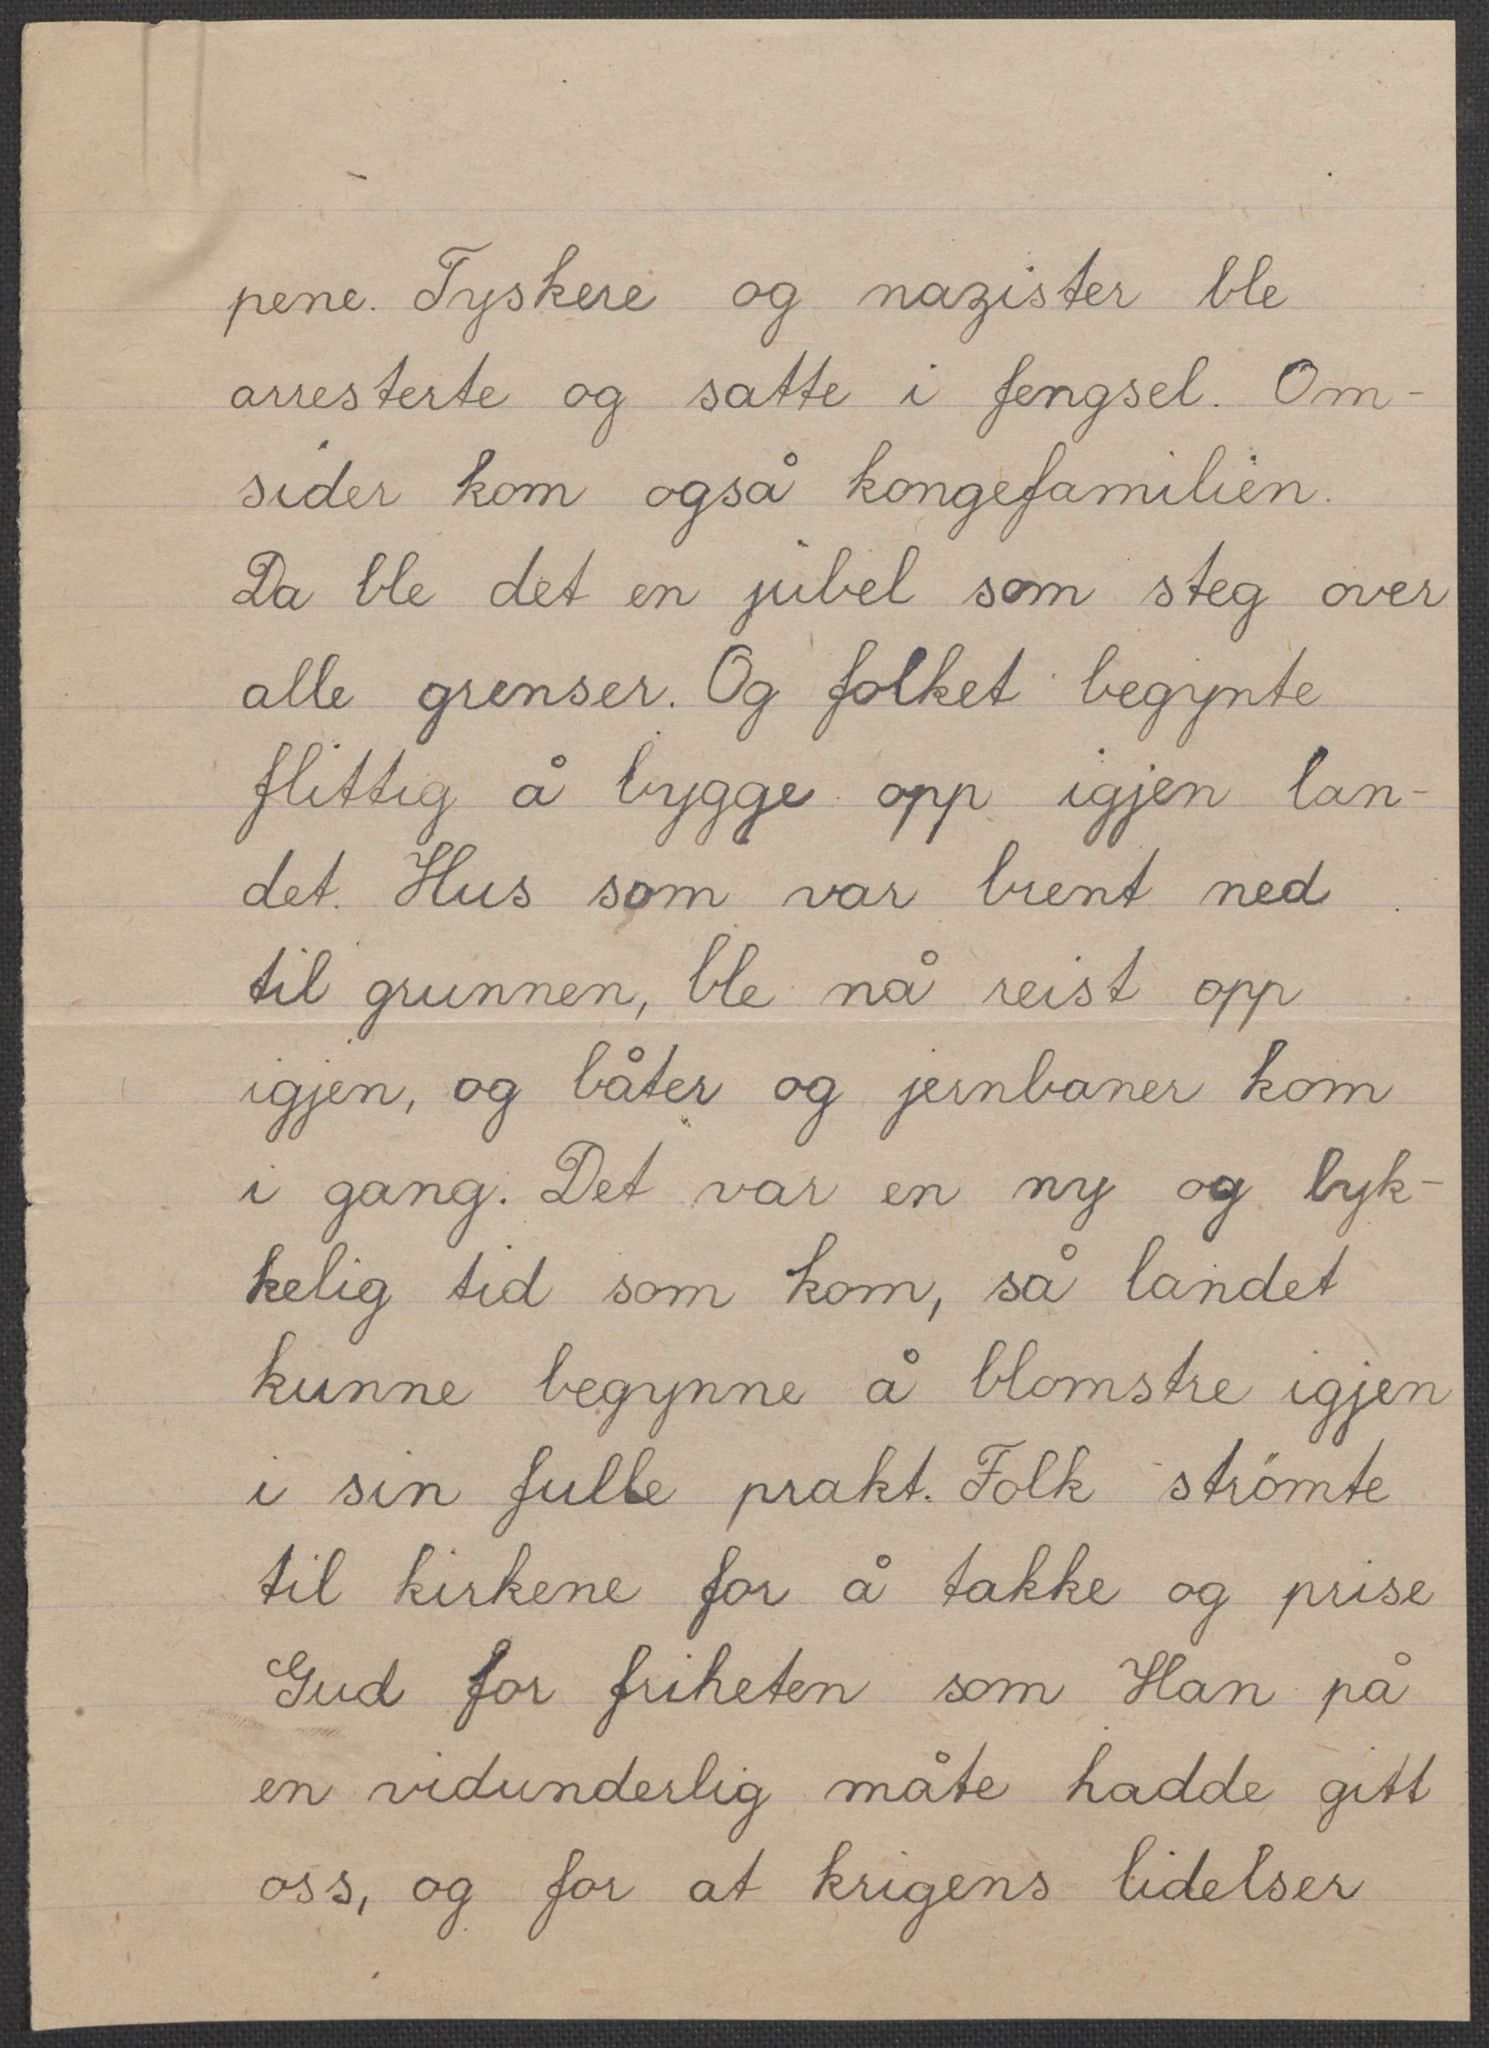 pene. Tyskere og nazister ble
arresterte og satte i fengsel. Om-
sider kom også kongefamilien.
Da ble det en jubel som steg over
alle grenser. Og folket begynte
flittig å bygge opp igjen lan-
det. Hus som var brent ned
til grunnen, ble nå reist opp
igjen, og båter og jernbaner kom
i gang. Det var en ny og lyk-
kelig tid som kom, så landet
kunne begynne å blomstre igjen
i sin fulle prakt. Folk strömte
til kirkene for å takke og prise
Gud for friheten som Han på
en vidunderlig måte hadde gitt
oss, og for at krigens lidelser